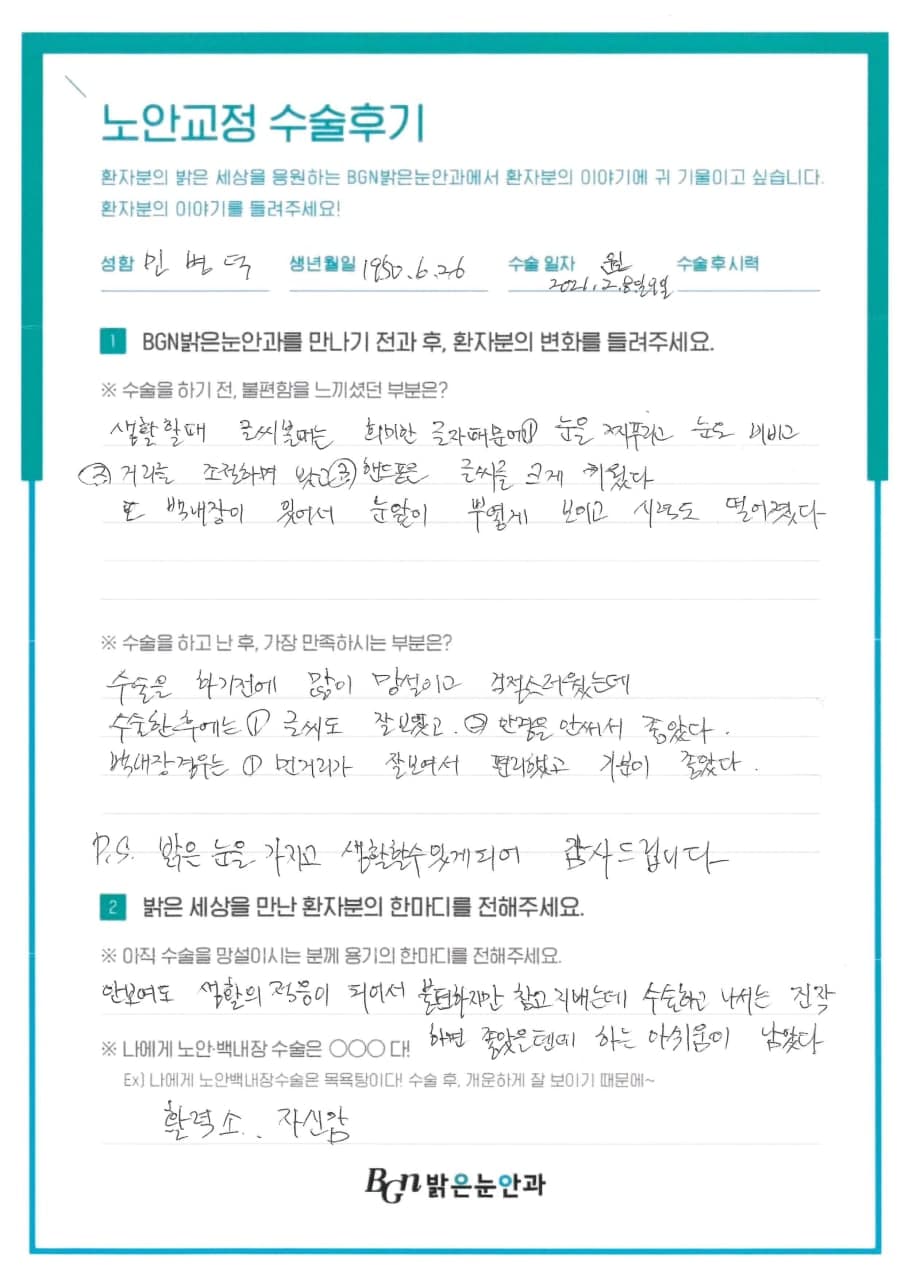 노안교정 수술후기
환자분의 밝은 세상을 응원하는 BGN밝은눈안과에서 환자분의 이야기에 귀 기울이고 싶습니다.
환자분의 이야기를 들려주세요!
성함 민병덕 생년월일 1950.6.26 수술 일자 2021.2.8일9일 수술 후 시력
1 BGN밝은눈안과를 만나기 전과 후, 환자분의 변화를 들려주세요.
※ 수술을 하기 전, 불편함을 느끼셨던 부분은?
생활할때 글씨볼때는 희미한 글자때문에① 눈을 찌푸리고 눈도 비비고
② 거리를 조절하며 봤고③핸드폰은 글씨를 크게 키웠다
또 백내장이 있어서 눈앞이 뿌옇게 보이고 시력도 떨어졌다
※ 수술을 하고 난 후, 가장 만족하시는 부분은?
수술을 하기전에 많이 망설이고 걱정스러웠는데
수술한후에는 ① 글씨도 잘보였고. ② 안경을 안써서 좋았다.
백내장경우는 ① 먼거리가 잘보여서 편리했고 기분이 좋았다.
P.S. 밝은 눈을 가지고 생활할수있게되어 감사드립니다
2 밝은 세상을 만난 환자분의 한마디를 전해주세요.
※ 아직 수술을 망설이시는 분께 용기의 한마디를 전해주세요.
안보여도 생활의 적응이 되어서 불편하지만 참고지내는데 수술하고 나서는 진작
하면 좋았을텐데 하는 아쉬움이 남았다
※ 나에게 노안·백내장 수술은 ○○○ 다!
Ex) 나에게 노안백내장수술은 목욕탕이다! 수술 후, 개운하게 잘 보이기 때문에~
활력소.. 자신감
BGN 밝은눈안과